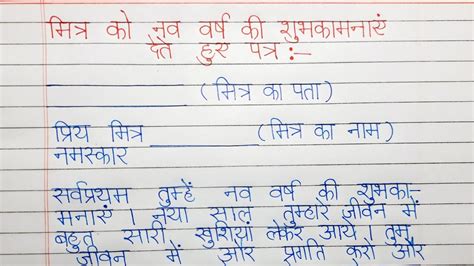 मित्र को नव वर्ष की शुभकामनाएं
देते हुए पत्र :-
____________ (मित्र का पता)
प्रिय मित्र ____________ (मित्र का नाम)
नमस्कार
सर्वप्रथम तुम्हें नव वर्ष की शुभका-
मनाएं । नया साल तुम्हारे जीवन में
बहुत सारी खुशियां लेकर आये । तुम
जीवन में और प्रगति करो और